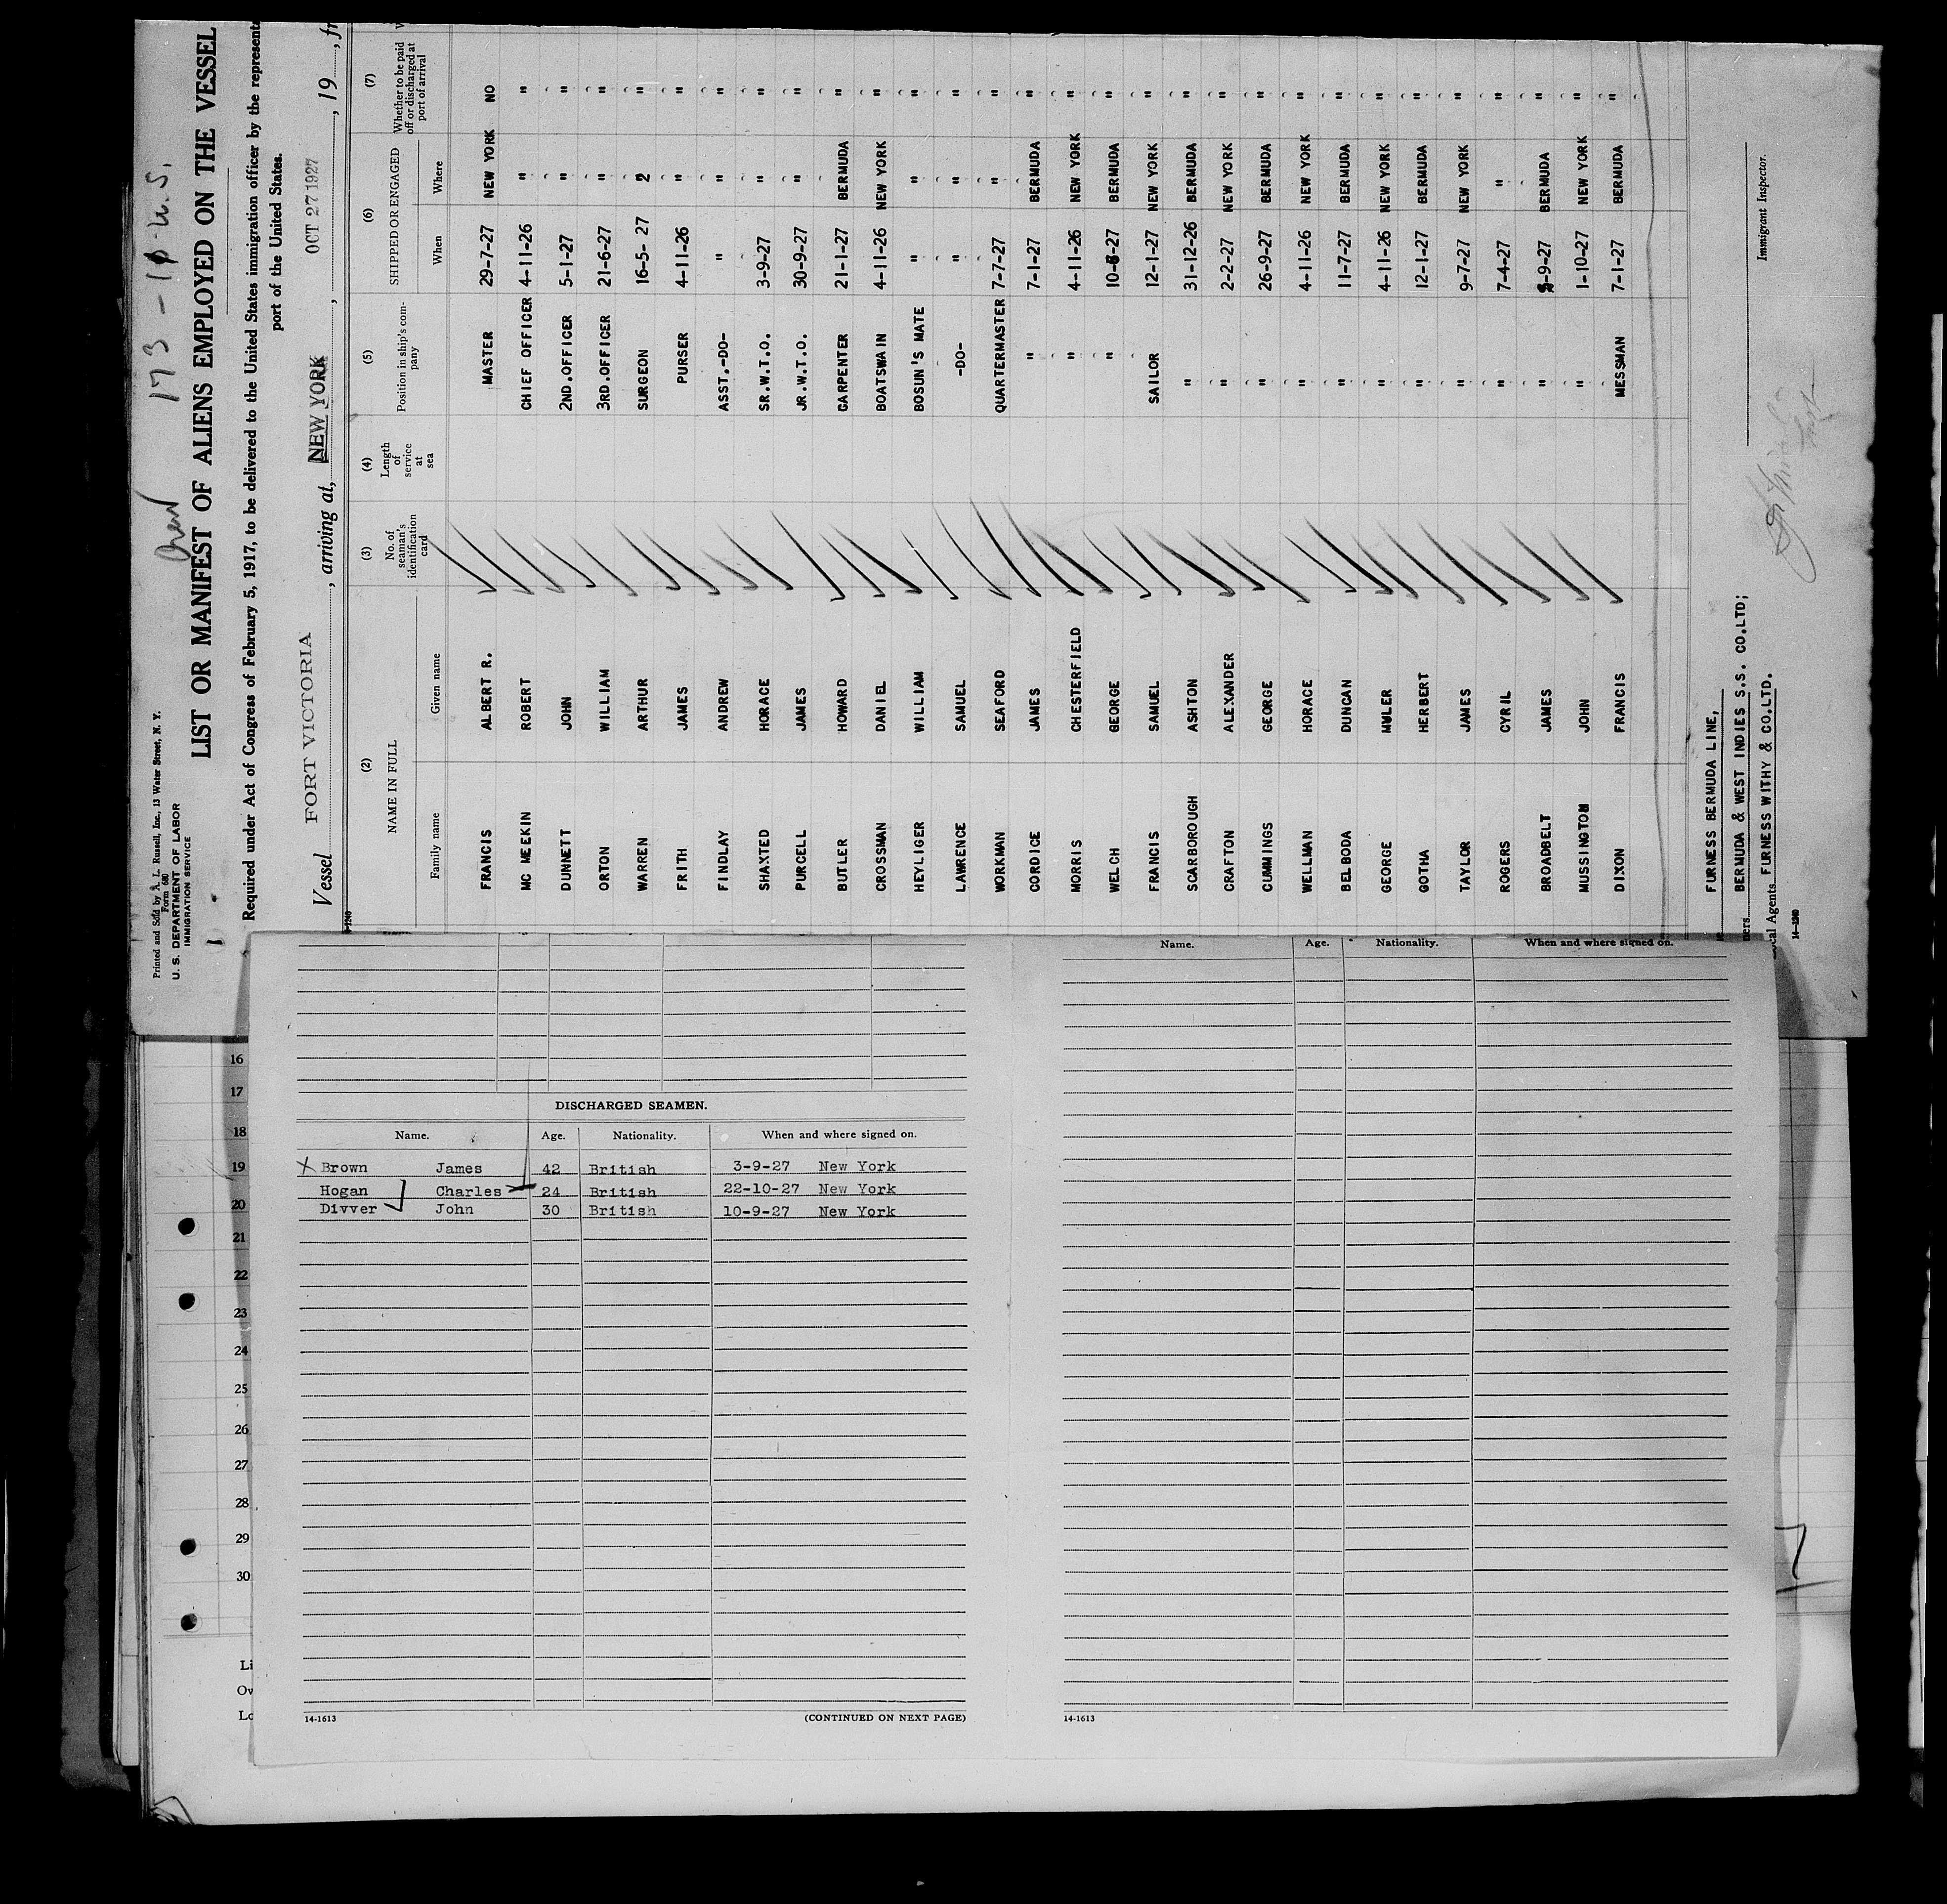 173 - 10-U.S.
Printed and Sold by A. L. Russell, Inc., 13 Water Street, N. Y.
Form 680
U. S. DEPARTMENT OF LABOR
IMMIGRATION SERVICE
LIST OR MANIFEST OF ALIENS EMPLOYED ON THE VESSEL
Required under Act of Congress of February 5, 1917, to be delivered to the United States immigration officer by the represent
port of the United States.
Vessel FORT VICTORIA, arriving at, NEW YORK, OCT 27 1927, 19, fr
(2) (3) (4) (5) (6) (7)
NAME IN FULL No. of seaman's identification card Length of service at sea Position in ship's company SHIPPED OR ENGAGED Whether to be paid off or discharged at port of arrival
Family name Given name When Where
FRANCIS ALBERT R. MASTER 29-7-27 NEW YORK NO
MC MEEKIN ROBERT CHIEF OFFICER 4-11-26 " "
DUNNETT JOHN 2ND.OFFICER 5-1-27 " "
ORTON WILLIAM 3RD.OFFICER 21-6-27 " "
WARREN ARTHUR SURGEON 16-5- 27 2 "
FRITH JAMES PURSER 4-11-26 " "
FINDLAY ANDREW ASST.-DO- " " "
SHAXTED HORACE SR.W.T.O. 3-9-27 " "
PURCELL JAMES JR.W.T.O. 30-9-27 " "
BUTLER HOWARD CARPENTER 21-1-27 BERMUDA "
CROSSMAN DANIEL BOATSWAIN 4-11-26 NEW YORK "
HEYLIGER WILLIAM BOSUN'S MATE " " "
LAWRENCE SAMUEL -DO- " " "
WORKMAN SEAFORD QUARTERMASTER 7-7-27 " "
CORDICE JAMES " 7-1-27 BERMUDA "
MORRIS CHESTERFIELD " 4-11-26 NEW YORK "
WELCH GEORGE " BERMUDA "
FRANCIS SAMUEL SAILOR 12-1-27 NEW YORK "
SCARBOROUGH ASHTON " 31-12-26 BERMUDA "
CRAFTON ALEXANDER " 2-2-27 NEW YORK "
CUMMINGS GEORGE " 26-9-27 BERMUDA "
WELLMAN HORACE " 4-11-26 NEW YORK "
BELBODA DUNCAN " 11-7-27 BERMUDA "
GEORGE MULER " 4-11-26 NEW YORK "
GOTHA HERBERT " 12-1-27 BERMUDA "
TAYLOR JAMES " 9-7-27 NEW YORK "
ROGERS CYRIL " 7-4-27 " "
BROADBELT JAMES " BERMUDA "
MUSSINGTON JOHN " 1-10-27 NEW YORK "
DIXON FRANCIS MESSMAN 7-1-27 BERMUDA "
FURNESS BERMUDA LINE,
BERMUDA & WEST INDIES S.S. CO.LTD;
cal Agents FURNESS WITHY & CO.LTD.
Immigrant Inspector.
14-1240
Name. Age. Nationality. When and where signed on.
16
17
18
19
20
21
22
23
24
25
26
27
28
29
30
Li
Ov
Lo
DISCHARGED SEAMEN.
Name. Age. Nationality. When and where signed on.
X Brown James 42 British 3-9-27 New York
Hogan Charles 24 British 22-10-27 New York
Divver John 30 British 10-9-27 New York
14-1613 (CONTINUED ON NEXT PAGE)
14-1613